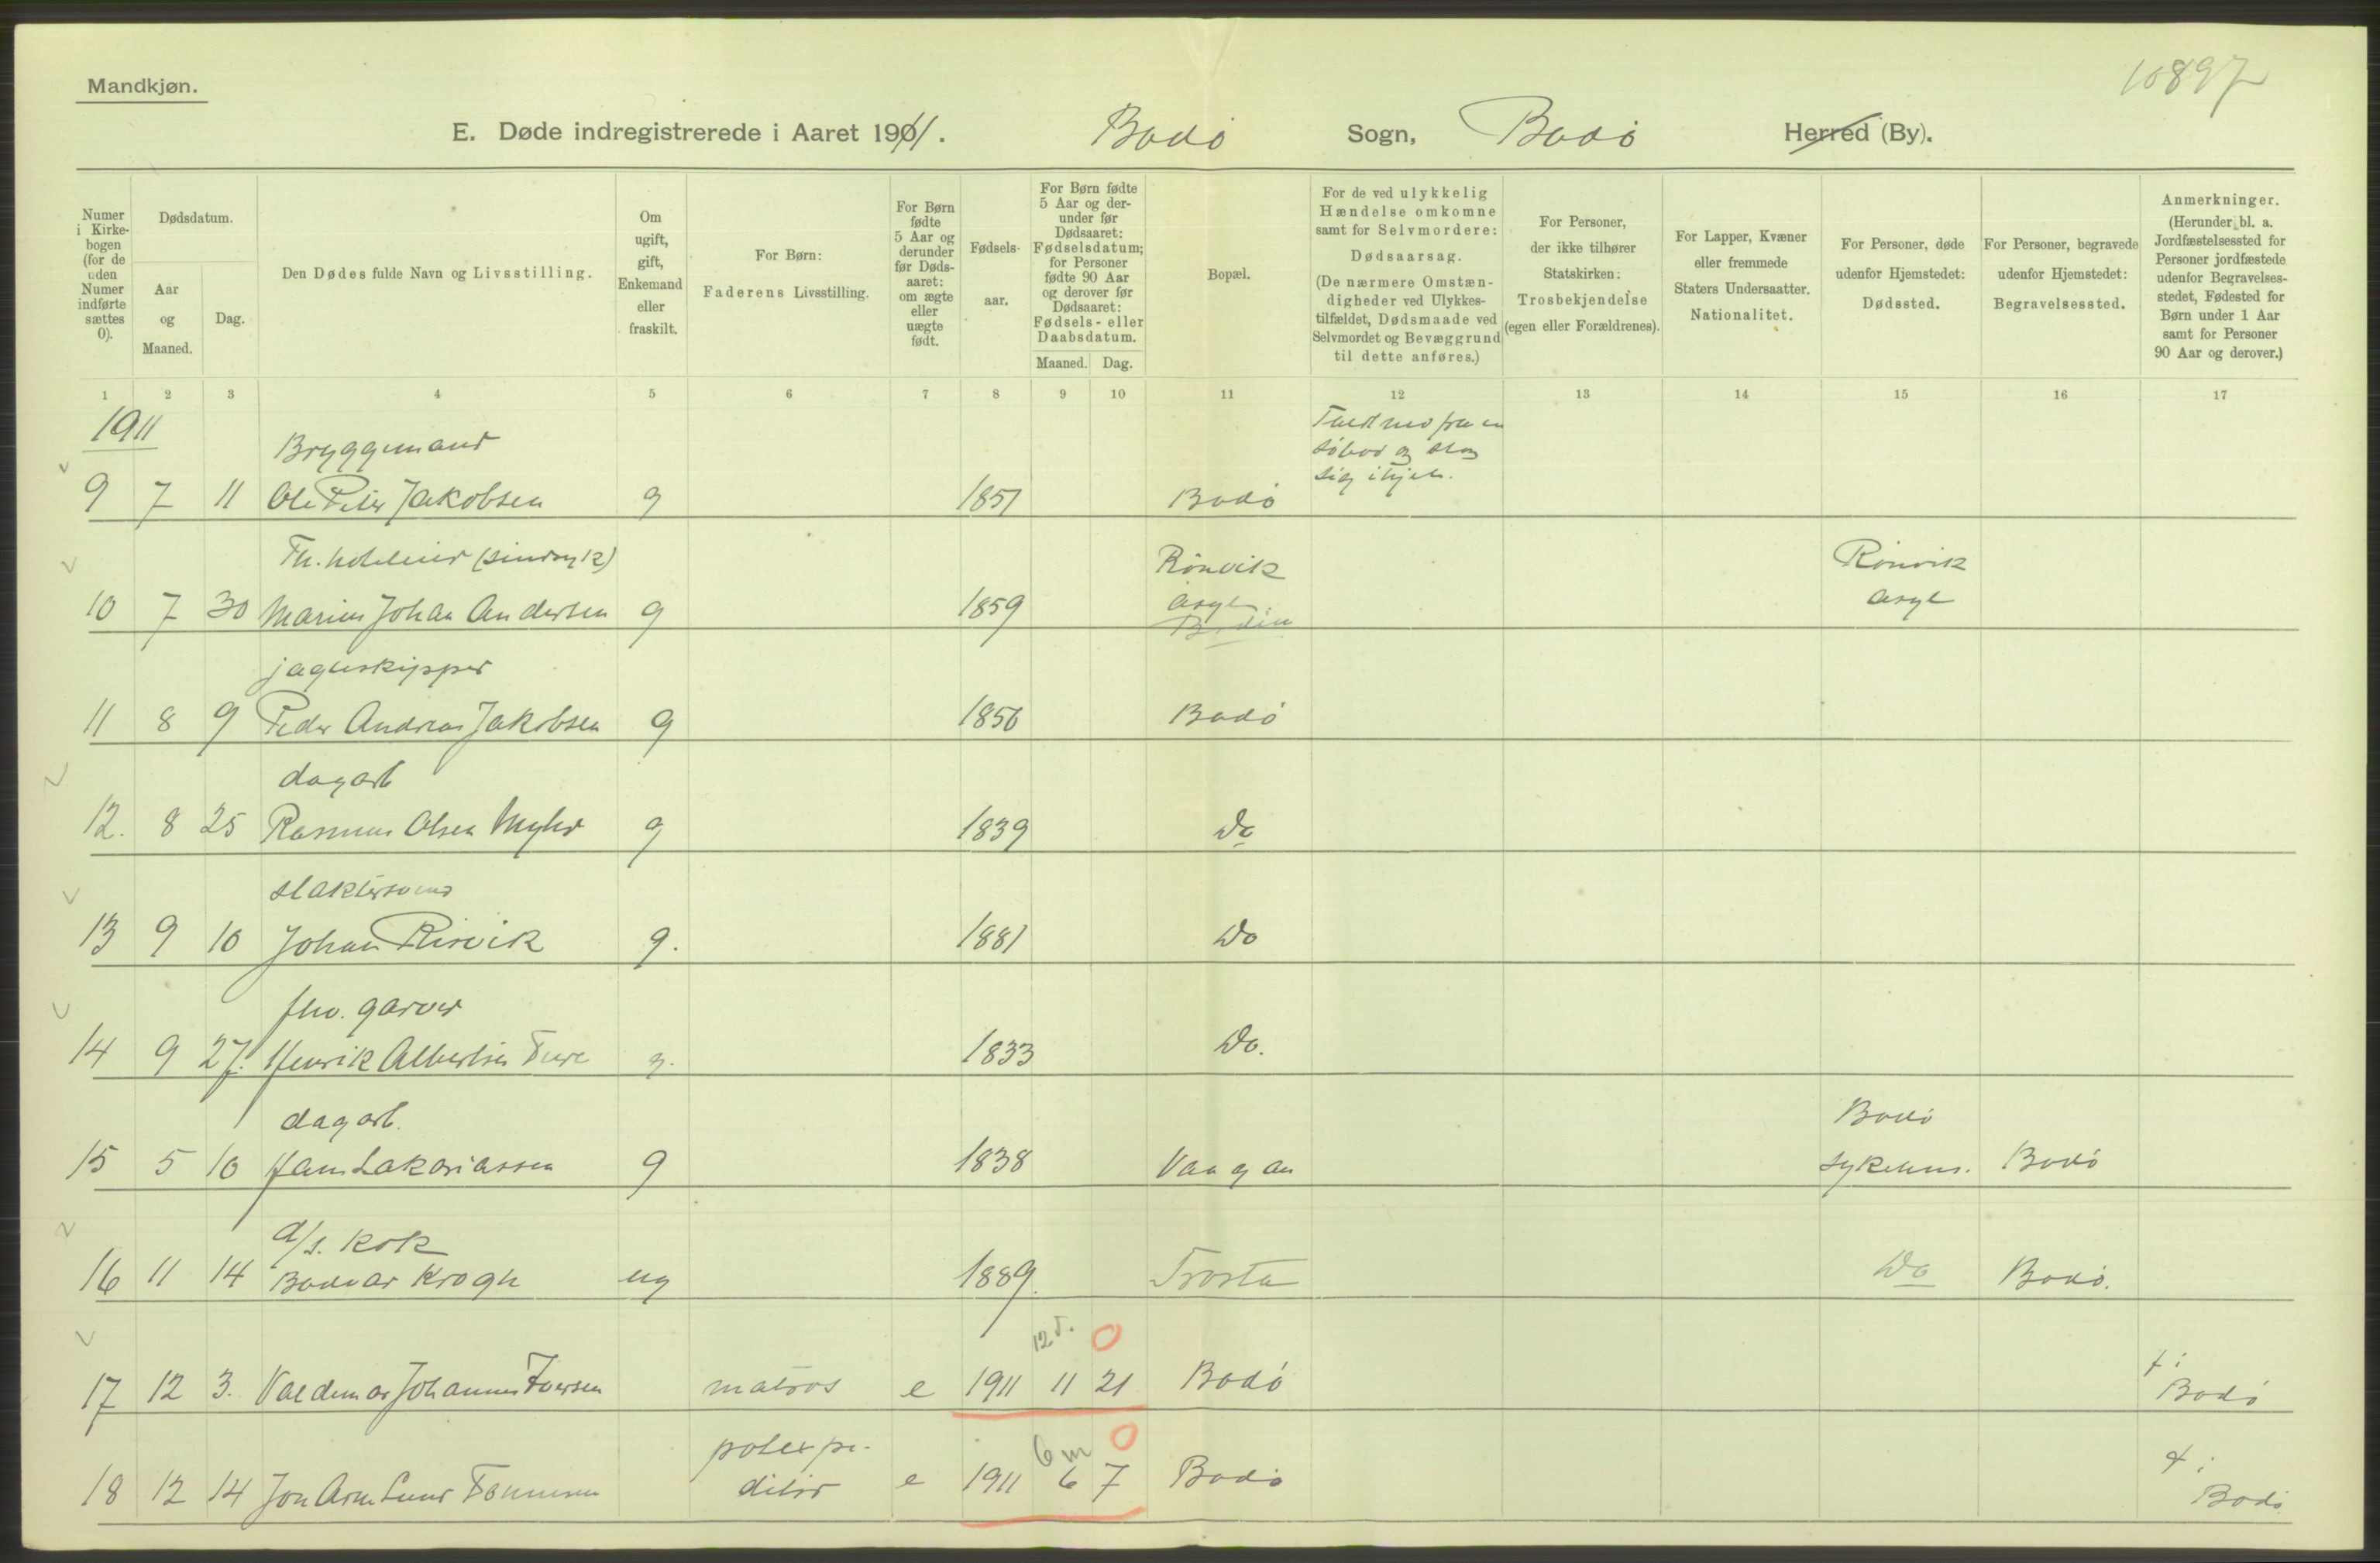 10897
Mandkjøn.
E. Døde indregistrerede i Aaret 1911. Bodø Sogn, Bodø Herred (By).
Numer i Kirkebogen (for de uden Numer indførte sættes 0).
Dødsdatum.
Aar og Maaned.
Dag.
Den Dødes fulde Navn og Livsstilling.
Om ugift, gift, Enkemand eller fraskilt.
For Børn: Faderens Livsstilling.
For Børn fødte 5 Aar og derunder før Dødsaaret: om ægte eller uægte født.
Fødselsaar.
For Børn fødte 5 Aar og derunder før Dødsaaret: Fødselsdatum; for Personer fødte 90 Aar og derover før Dødsaaret: Fødsels- eller Daabsdatum.
Maaned. Dag.
Bopæl.
For de ved ulykkelig Hændelse omkomne samt for Selvmordere: Dødsaarsag. (De nærmere Omstændigheder ved Ulykkestilfældet, Dødsmaade ved Selvmordet og Bevæggrund til dette anføres.)
For Personer, der ikke tilhører Statskirken: Trosbekjendelse (egen eller Forældrenes).
For Lapper, Kvæner eller fremmede Staters Undersaatter. Nationalitet.
For Personer, døde udenfor Hjemstedet: Dødssted.
For Personer, begravede udenfor Hjemstedet: Begravelsessted.
Anmerkninger. (Herunder bl. a. Jordfæstelsessted for Personer jordfæstede udenfor Begravelsesstedet, Fødested for Børn under 1 Aar samt for Personer 90 Aar og derover.)
1 2 3 4 5 6 7 8 9 10 11 12 13 14 15 16 17
1911
Bryggemand
ned fra en
søbod og slog
sig ihjel.
9 7 11 Ole Peter Jakobsen g 1851 Bodø
Fh. hoteleier (sindsyk) Rønvik Rønvik
10 7 30 Marius Johan Andersen g 1859 asyl. asyl
Bodin
jagteskipper
11 8 9 Peder Andreas Jakobsen g 1856 Bodø
dagarb
12. 8 25 Rasmus Olsen g 1839 Do
slaktersvend
13 9 10 Johan Risvik g. 1881 Do
fhv. garver
14 9 27. Henrik Albertsen g. 1833 Do.
dagarb. Bodø
15 5 10 Hans Zakariassen g 1838 Vaagan sykehus. Bodø
d/s. kok
16 11 14 Bodvar Krogh ug 1889. Do Bodø.
12 d. 0
17 12 3. Valdemar Johannes Iversen matros e 1911 11 21 Bodø
+ i
Bodø
6 m 0
polexpe-
18 12 14 Jon Arne ditør e 1911 6 7 Bodø
+ i
Bodø